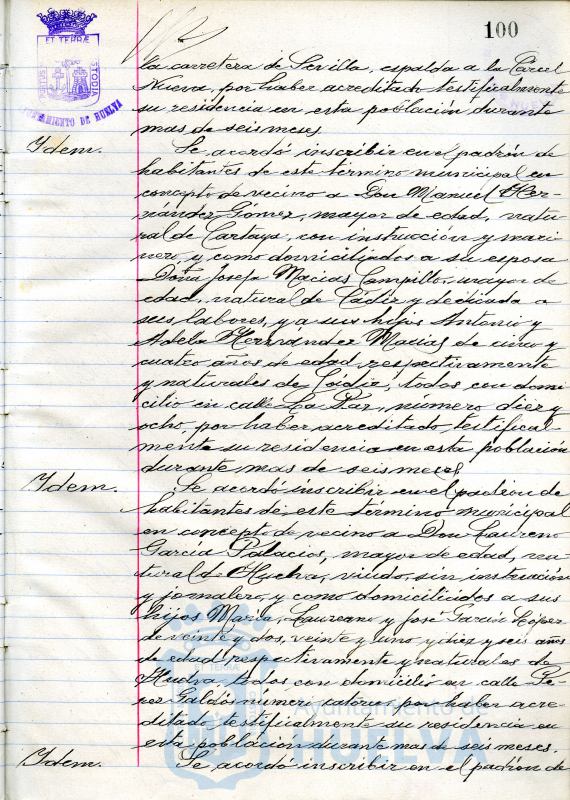 100
ET TERRÆ
AYUNTAMIENTO DE HUELVA
la carretera de Sevilla, espalda a la Carcel
Nueva, por haber acreditado testificalmente
su residencia en esta población durante
mas de seis meses.
Ydem. Se acordó inscribir en el padrón de
habitantes de este termino municipal en
concepto de vecino a Don Manuel Her-
nández Gómez, mayor de edad, natu-
ral de Cartaya, con instrucción y mari-
nero, y como domiciliados a su esposa
Doña Josefa Macias Campillo, mayor de
edad, natural de Cádiz y dedicada a
sus labores, y a sus hijos Antonio y
Adela Hernandez Macias de cinco y
cuatro años de edad respectivamente
y naturales de Cádiz, todos con domi-
cilio en calle La Paz, número diez y
ocho, por haber acreditado testifical-
mente su residencia en esta población
durante mas de seis meses.
Ydem. Se acordó inscribir en el padrón de
habitantes de este termino municipal
en concepto de vecino a Don Laureno
García Palacios, mayor de edad, na-
tural de Huelva, viudo, sin instrucción
y jornalero, y como domiciliados a sus
hijos Maria, Laureano y José García López
de veinte y dos, veinte y uno y diez y seis años
de edad respectivamente y naturales de
Huelva, todos con domicilio en calle Pé-
rez Galdós número catorce, por haber acre-
ditado testificalmente su residencia en
esta población durante mas de seis meses.
Ydem. Se acordó inscribir en el padrón de
Ayuntamiento de
HUELVA